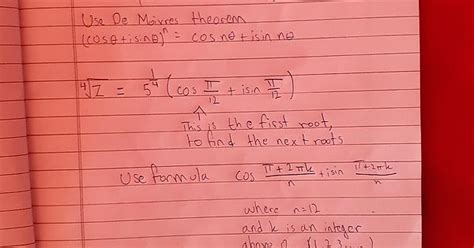 Use De Moivres theorem
(cosθ+isinθ)ⁿ = cos nθ + isin nθ
⁴√Z = 5^(1/4) (cos π/12 + isin π/12)
This is the first root,
to find the next roots
Use formula cos (π+2πk)/n + isin (π+2πk)/n
where n=12
and k is an integer
above 0